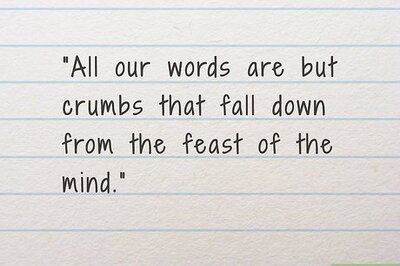 "All our words are but
crumbs that fall down
from the feast of the
mind."